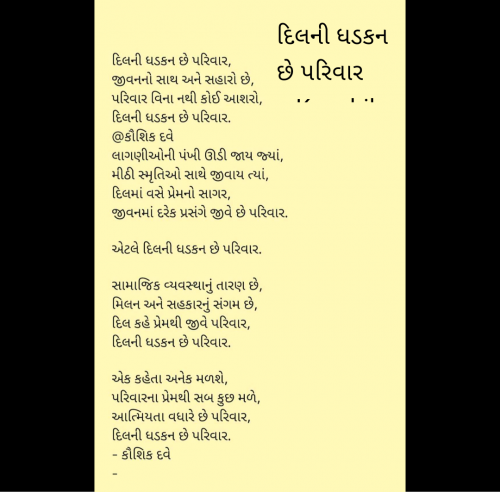 દિલની ધડકન
છે પરિવાર
દિલની ધડકન છે પરિવાર,
જીવનનો સાથ અને સહારો છે,
પરિવાર વિના નથી કોઈ આશરો,
દિલની ધડકન છે પરિવાર.
@કૌશિક દવે
લાગણીઓની પંખી ઊડી જાય જ્યાં,
મીઠી સ્મૃતિઓ સાથે જીવાય ત્યાં,
દિલમાં વસે પ્રેમનો સાગર,
જીવનમાં દરેક પ્રસંગે જીવે છે પરિવાર.
એટલે દિલની ધડકન છે પરિવાર.
સામાજિક વ્યવસ્થાનું તારણ છે,
મિલન અને સહકારનું સંગમ છે,
દિલ કહે પ્રેમથી જીવે પરિવાર,
દિલની ધડકન છે પરિવાર.
એક કહેતા અનેક મળશે,
પરિવારના પ્રેમથી સબ કુછ મળે,
આત્મિયતા વધારે છે પરિવાર,
દિલની ધડકન છે પરિવાર.
- કૌશિક દવે
-